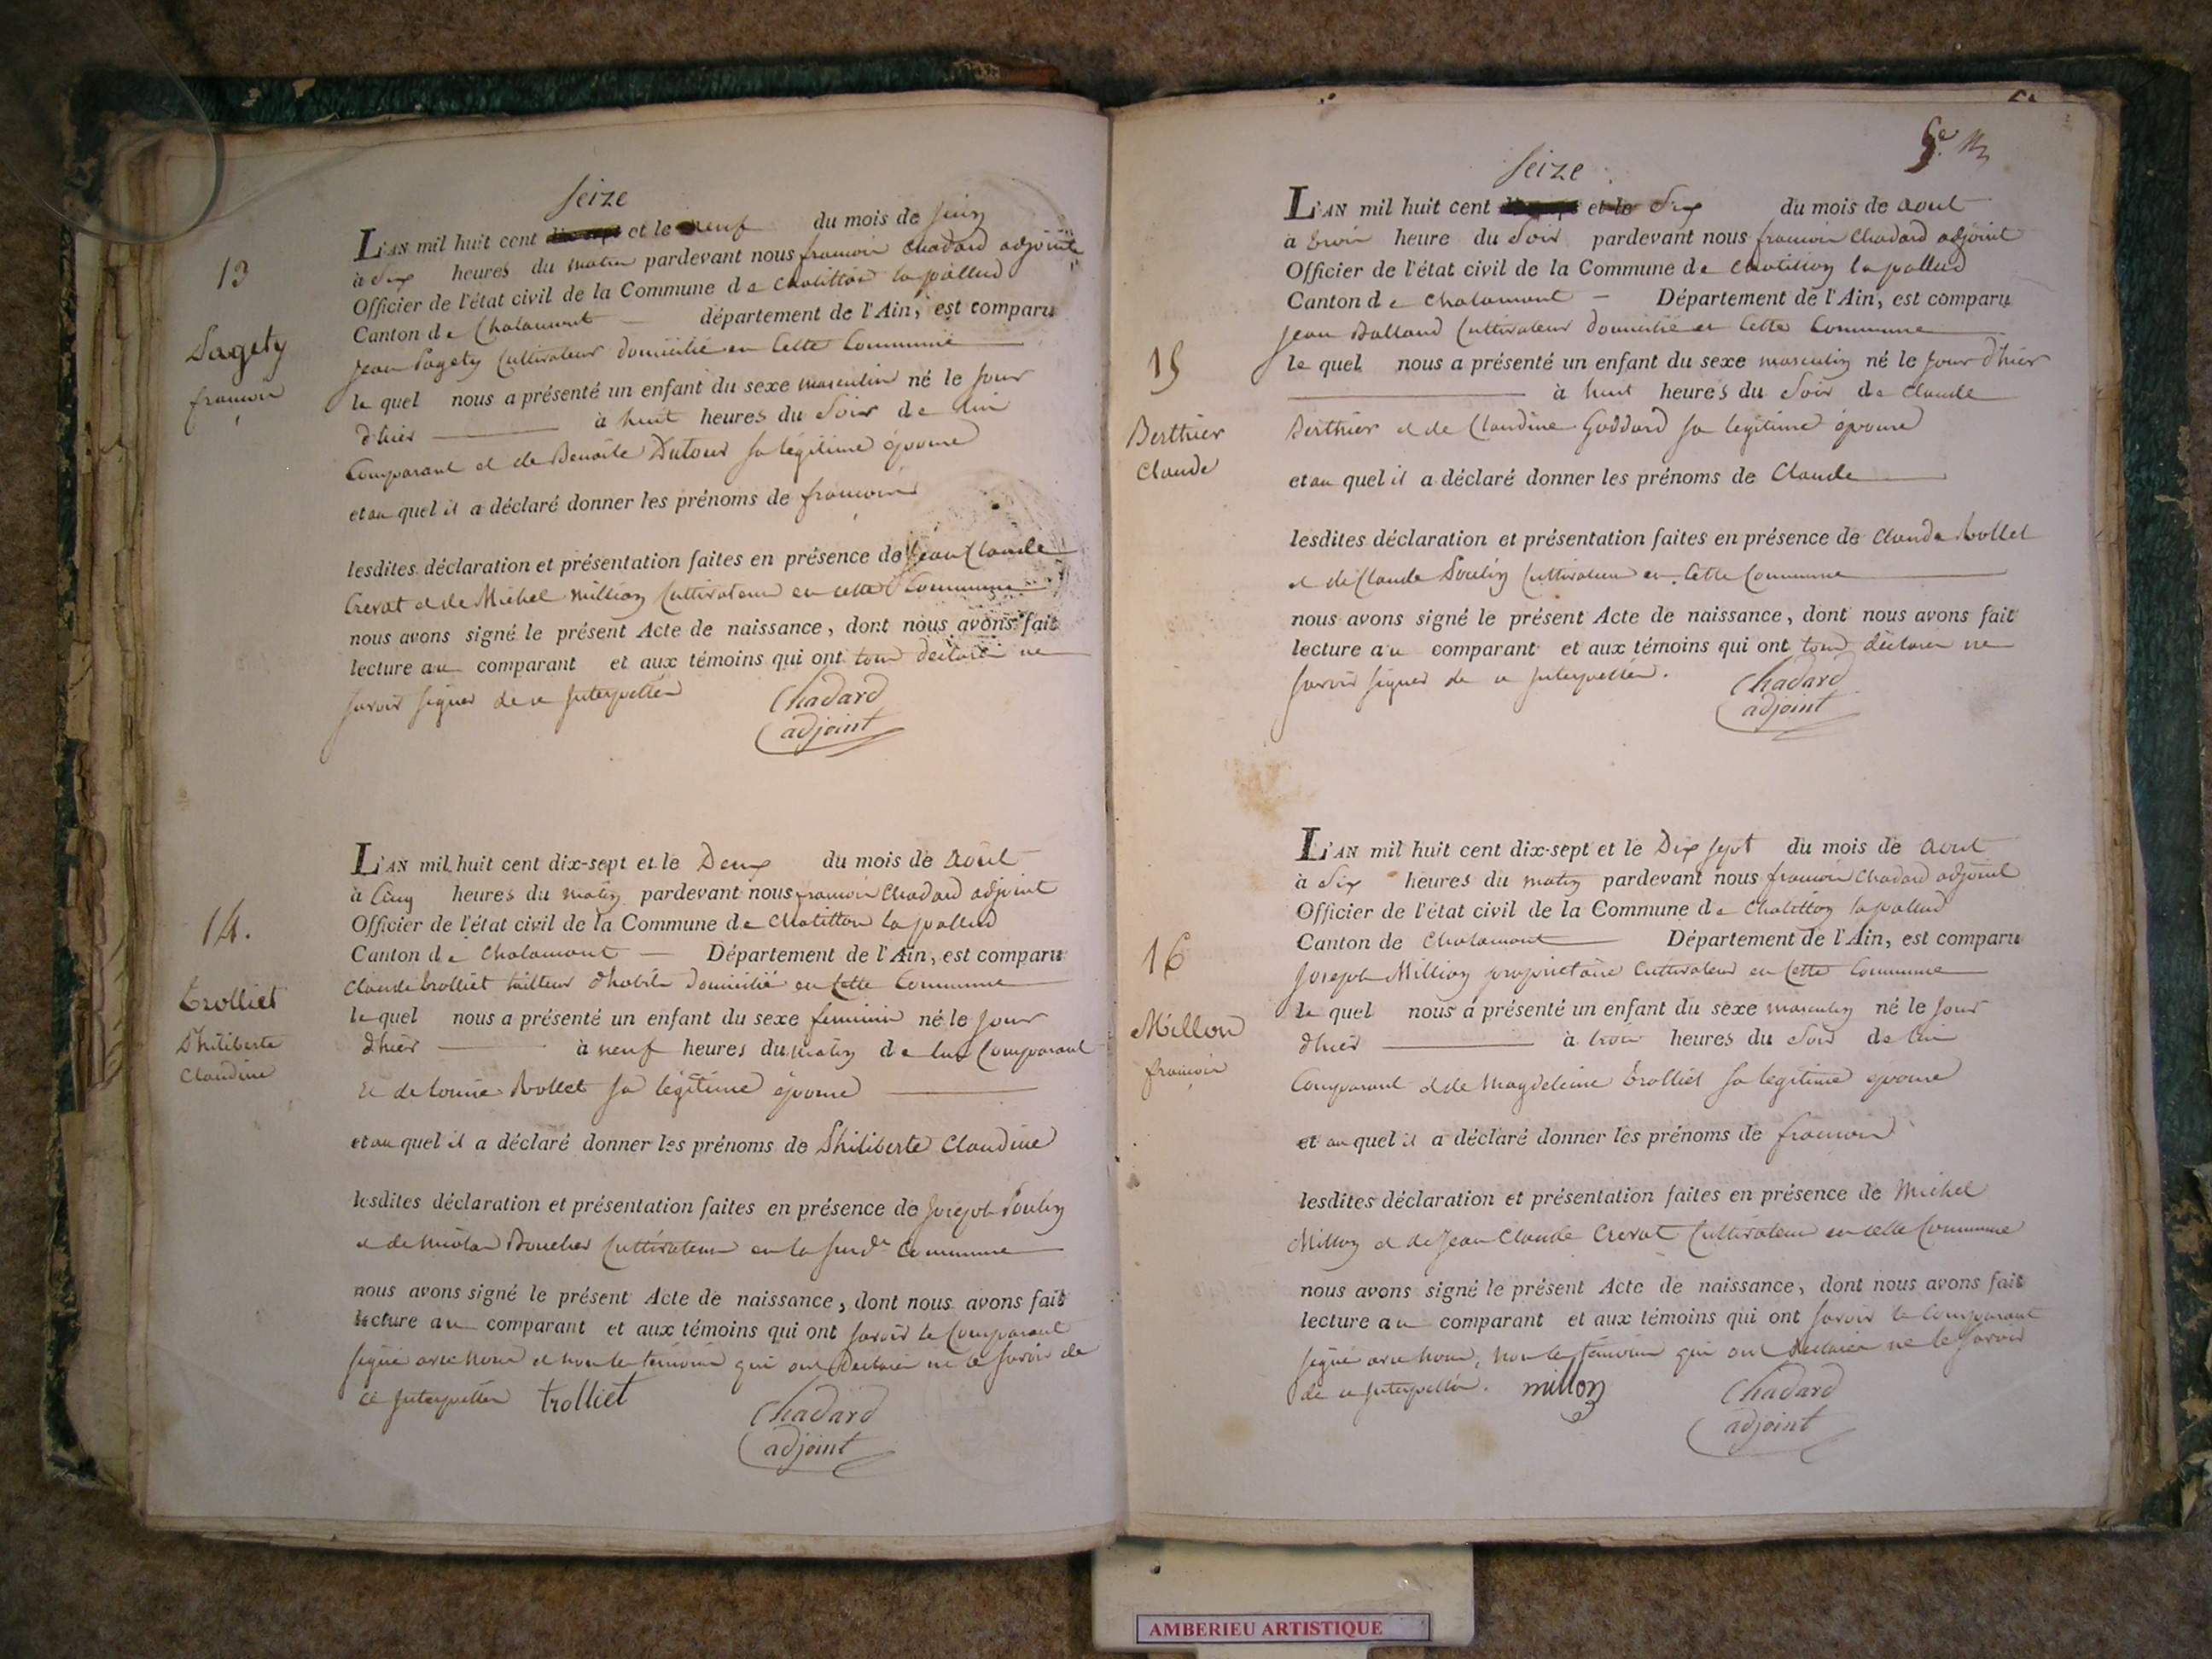 13
Pagety
françois
seize
L'AN mil huit cent dix-sept et le neuf du mois de juin
à six heures du matin pardevant nous françois Chadard adjoint
Officier de l'état civil de la Commune de Chatillon la pallud
Canton de Chalamont — département de l'Ain, est comparu
Jean Pagety Cultivateur domicilié en Cette Commune
le quel nous a présenté un enfant du sexe masculin né le jour
d'hier à huit heures du Soir de lui
Comparant et de Benoite Dutour sa légitime épouse
et au quel il a déclaré donner les prénoms de françois
lesdites déclaration et présentation faites en présence de Jean Claude
Crevat et de Michel million Cultivateurs en cette Commune
nous avons signé le présent Acte de naissance, dont nous avons fait
lecture au comparant et aux témoins qui ont tous déclaré ne
savoir signer de ce Interpellés
Chadard
adjoint
14.
Trolliet
Philiberte
Claudine
L'AN mil huit cent dix-sept et le Deux du mois de Août
à Cinq heures du matin pardevant nous françois Chadard adjoint
Officier de l'état civil de la Commune de Chatillon la pallud
Canton de Chalamont — Département de l'Ain, est comparu
Claude trolliet tailleur d'habits Domicilié en Cette Commune
le quel nous a présenté un enfant du sexe féminin né le jour
d'hier à neuf heures du matin de lui Comparant
et de Rollet sa légitime épouse
et au quel il a déclaré donner les prénoms de Philiberte Claudine
lesdites déclaration et présentation faites en présence de Joseph Poulin
et de nicolas Boucher Cultivateurs en la susde Commune
nous avons signé le présent Acte de naissance, dont nous avons fait
lecture au comparant et aux témoins qui ont savoir le Comparant
signé avec nous et non les témoins qui ont Déclaré ne le savoir de
ce Interpellés trolliet
Chadard
adjoint
5e
seize
L'AN mil huit cent dix-sept et le Six du mois de Aout
à trois heure du Soir pardevant nous françois Chadard adjoint
Officier de l'état civil de la Commune de Chatillon la pallud
Canton de Chalamont — Département de l'Ain, est comparu
Jean Balland Cultivateur domicilié en Cette Commune
15
Berthier
Claude
le quel nous a présenté un enfant du sexe masculin né le Jour d'hier
à huit heures du Soir de Claude
Berthier et de Claudine Goddard sa légitime épouse
et au quel il a déclaré donner les prénoms de Claude
lesdites déclaration et présentation faites en présence de Claude Rollet
et de Claude Poulin Cultivateurs en Cette Commune
nous avons signé le présent Acte de naissance, dont nous avons fait
lecture au comparant et aux témoins qui ont tous déclaré ne
savoir signer de ce Interpellés.
Chadard
adjoint
16
Millon
françois
L'AN mil huit cent dix-sept et le Dix sept du mois de Aout
à Six heures du matin pardevant nous françois Chadard adjoint
Officier de l'état civil de la Commune de Chatillon la pallud
Canton de Chalamont Département de l'Ain, est comparu
Joseph Million propriétaire Cultivateur en Cette Commune
le quel nous a présenté un enfant du sexe masculin né le jour
d'hier à trois heures du Soir de lui
Comparant et de Magdeleine Trolliet sa légitime épouse
et au quel il a déclaré donner les prénoms de françois
lesdites déclaration et présentation faites en présence de Michel
Millon et de Jean Claude Crevat Cultivateurs en cette Commune
nous avons signé le présent Acte de naissance, dont nous avons fait
lecture au comparant et aux témoins qui ont savoir le Comparant
signé avec nous, non les témoins qui ont déclaré ne le savoir
de ce Interpellés. millon
Chadard
adjoint
AMBERIEU ARTISTIQUE